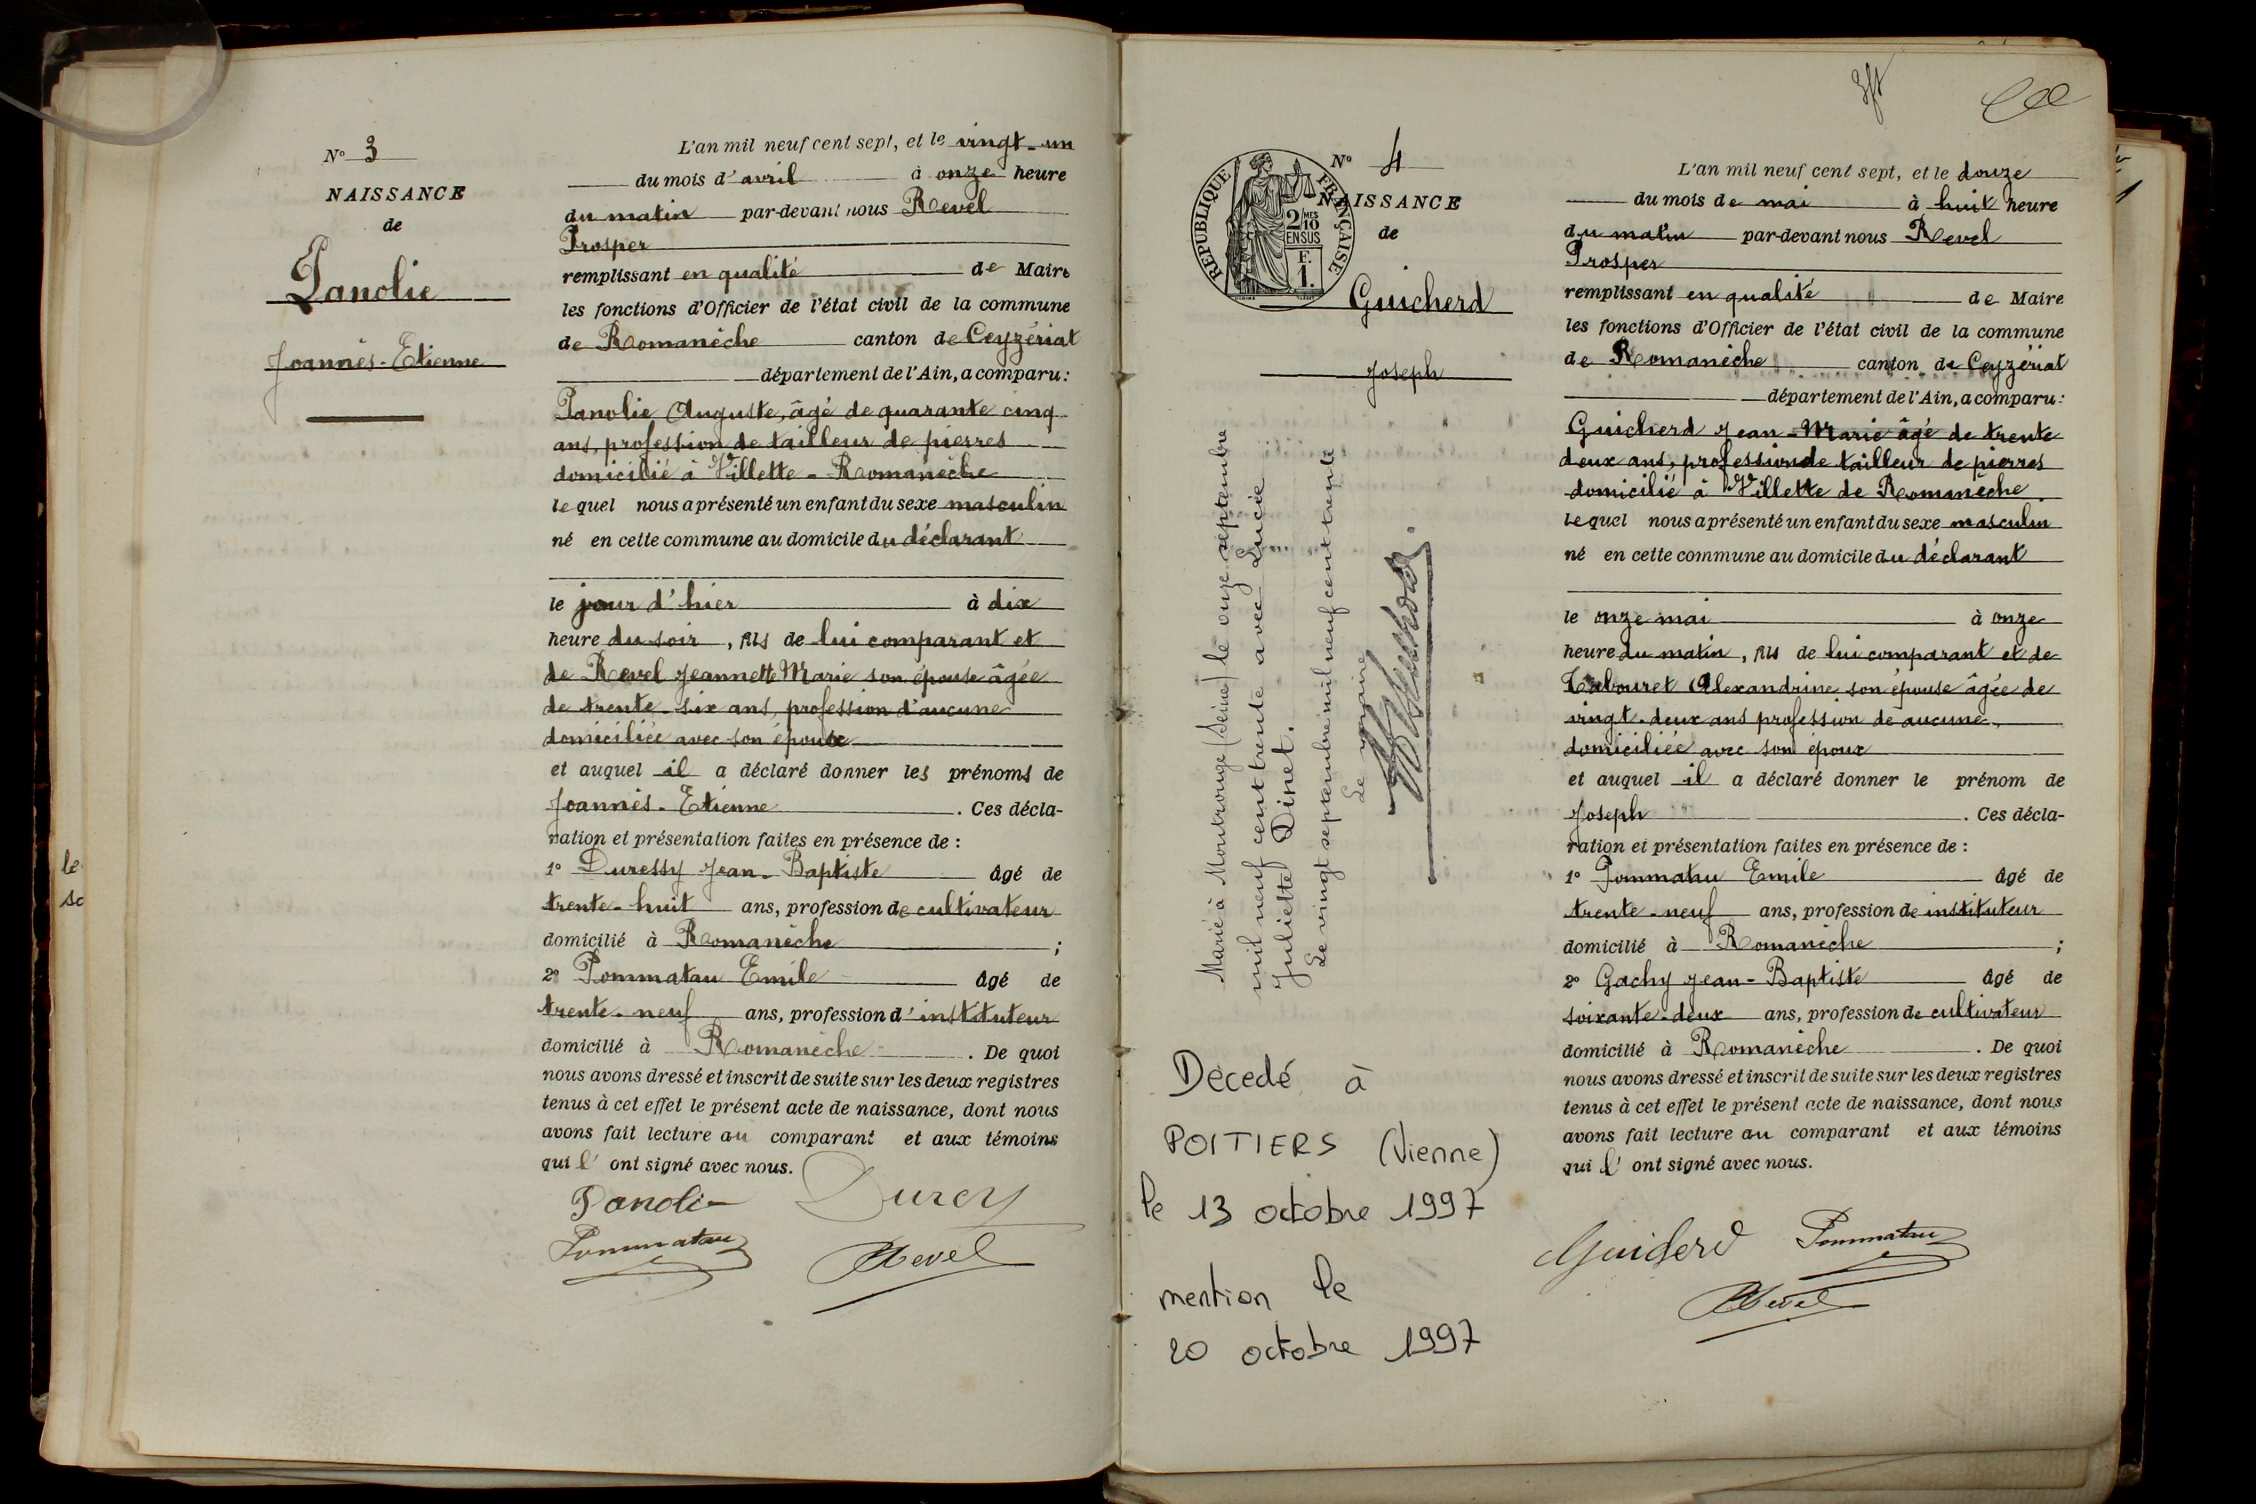 le
so
N° 3
NAISSANCE
de
Panolie
Joannès-Etienne
L'an mil neuf cent sept, et le vingt-un
du mois d'avril à onze heure
du matin par-devant nous Revel
Prosper
remplissant en qualité de Maire
les fonctions d'Officier de l'état civil de la commune
de Romanèche canton de Ceyzériat
département de l'Ain, a comparu:
Panolie Auguste, âgé de quarante cinq
ans, profession de tailleur de pierres
domicilié à Villette - Romanèche
le quel nous a présenté un enfant du sexe masculin
né en cette commune au domicile du déclarant
le jour d'hier à dix
heure du soir, fils de lui comparant et
de Revel Jeannette Marie son épouse âgée
de trente-six ans, profession d'aucune
domiciliée avec son époux
et auquel il a déclaré donner les prénoms de
Joannès-Etienne. Ces décla-
ration et présentation faites en présence de :
1° Duressy Jean-Baptiste âgé de
trente-huit ans, profession de cultivateur
domicilié à Romanèche ;
2° Pommatau Emile âgé de
trente-neuf ans, profession d'instituteur
domicilié à Romanèche. De quoi
nous avons dressé et inscrit de suite sur les deux registres
tenus à cet effet le présent acte de naissance, dont nous
avons fait lecture au comparant et aux témoins
qui l' ont signé avec nous.
Panolie Durcy
Pommatau Revel
N° 4
RÉPUBLIQUE FRANÇAISE
2/10 MES
EN SUS
F.
1.
NAISSANCE
de
Guicherd
Joseph
Marié à Montrouge (Seine) le onze septembre
mil neuf cent trente avec Lucie
Juliette Dinet.
Le vingt septembre mil neuf cent trente
Le maire
Décedé à
POITIERS (Vienne)
le 13 octobre 1997
mention le
20 octobre 1997
L'an mil neuf cent sept, et le douze
du mois de mai à huit heure
du matin par-devant nous Revel
Prosper
remplissant en qualité de Maire
les fonctions d'Officier de l'état civil de la commune
de Romanèche canton de Ceyzériat
département de l'Ain, a comparu:
Guicherd Jean-Marie âgé de trente
deux ans, profession de tailleur de pierres
domicilié à Villette de Romanèche.
le quel nous a présenté un enfant du sexe masculin
né en cette commune au domicile du déclarant
le onze mai à onze
heure du matin, fils de lui comparant et de
Tabouret Alexandrine son épouse âgée de
vingt-deux ans profession de aucune,
domiciliée avec son époux
et auquel il a déclaré donner le prénom de
Joseph. Ces décla-
ration et présentation faites en présence de :
1° Pommatau Emile âgé de
trente-neuf ans, profession de instituteur
domicilié à Romanèche ;
2° Gachy Jean-Baptiste âgé de
soixante-deux ans, profession de cultivateur
domicilié à Romanèche. De quoi
nous avons dressé et inscrit de suite sur les deux registres
tenus à cet effet le présent acte de naissance, dont nous
avons fait lecture au comparant et aux témoins
qui l' ont signé avec nous.
Guicherd Pommatau
Revel